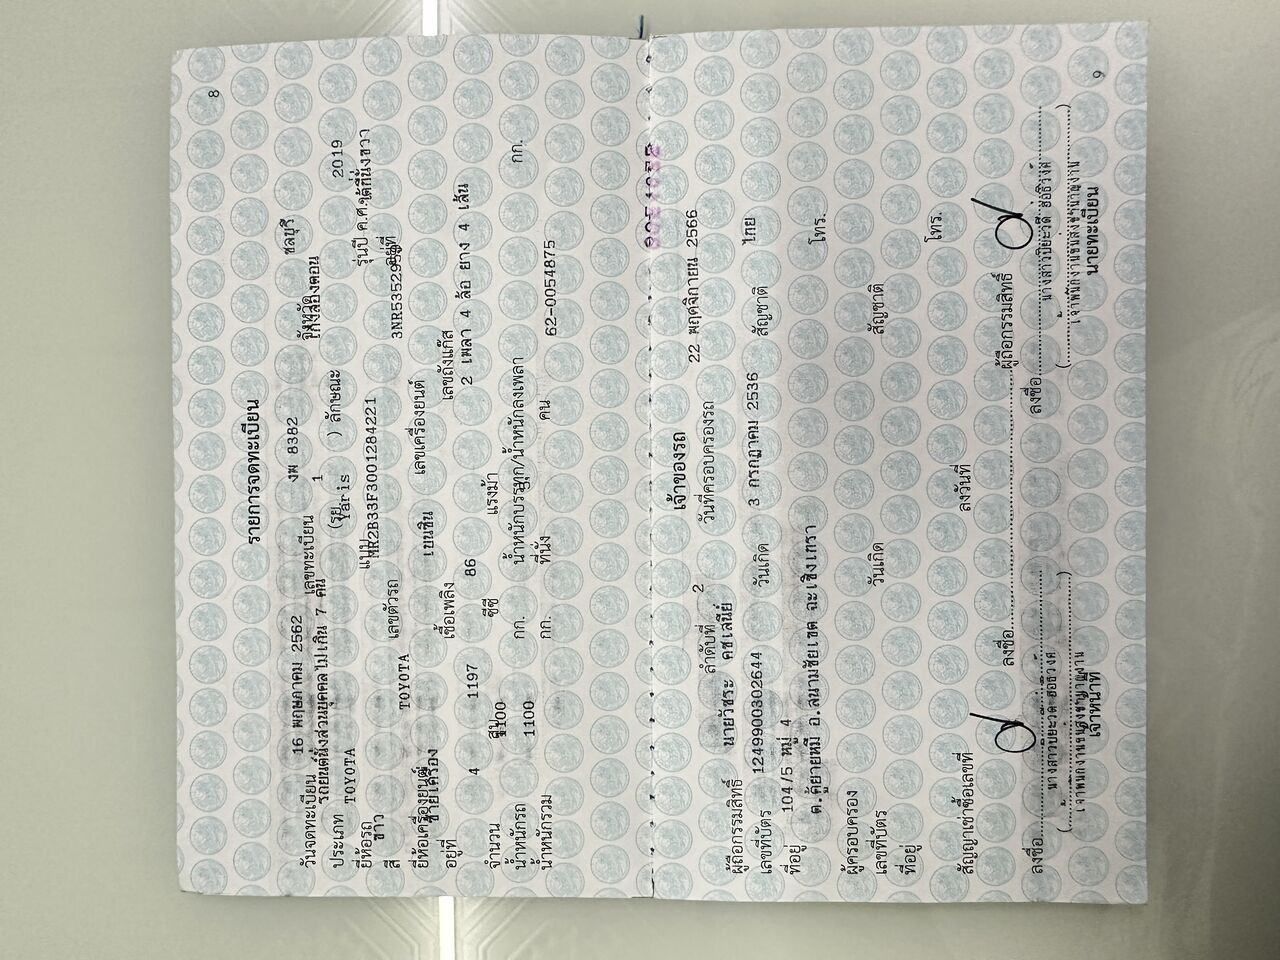 8
รายการจดทะเบียน
วันจดทะเบียน 16 พฤษภาคม 2562 เลขทะเบียน งพ 8382 จังหวัด ชลบุรี
ประเภท รถยนต์นั่งส่วนบุคคลไม่เกิน 7 คน (รย. 1 ) ลักษณะ เก๋งสองตอน
ยี่ห้อรถ TOYOTA แบบ Yaris รุ่นปี ค.ศ. 2019
สี ขาว เลขตัวรถ MR2B33F3001284221 อยู่ที่
ยี่ห้อเครื่องยนต์ TOYOTA เลขเครื่องยนต์
อยู่ที่ ซ้ายเครื่อง เชื้อเพลิง เบนซิน เลขถังแก๊ส
จำนวน 4 สูบ 1197 ซีซี 86 แรงม้า 2 เพลา 4 ล้อ ยาง 4 เส้น
น้ำหนักรถ 1100 กก. น้ำหนักบรรทุก/น้ำหนักลงเพลา กก.
น้ำหนักรวม 1100 กก. ที่นั่ง คน 62-0054875
เจ้าของรถ
ลำดับที่ 2 วันที่ครอบครองรถ 22 พฤศจิกายน 2566
ผู้ถือกรรมสิทธิ์ นายวัชระ คชเสนีย์
เลขที่บัตร 1249900302644 วันเกิด 3 กรกฎาคม 2536 สัญชาติ ไทย
ที่อยู่ 104/5 หมู่ 4 โทร.
ต.คู้ยายหมี อ.สนามชัยเขต ฉะเชิงเทรา
ผู้ครอบครอง
เลขที่บัตร วันเกิด สัญชาติ
ที่อยู่ โทร.
สัญญาเช่าซื้อเลขที่ ลงวันที่
ลงชื่อ ผู้ถือกรรมสิทธิ์
ลงชื่อ ลงชื่อ
เจ้าหน้าที่ นายทะเบียน
9